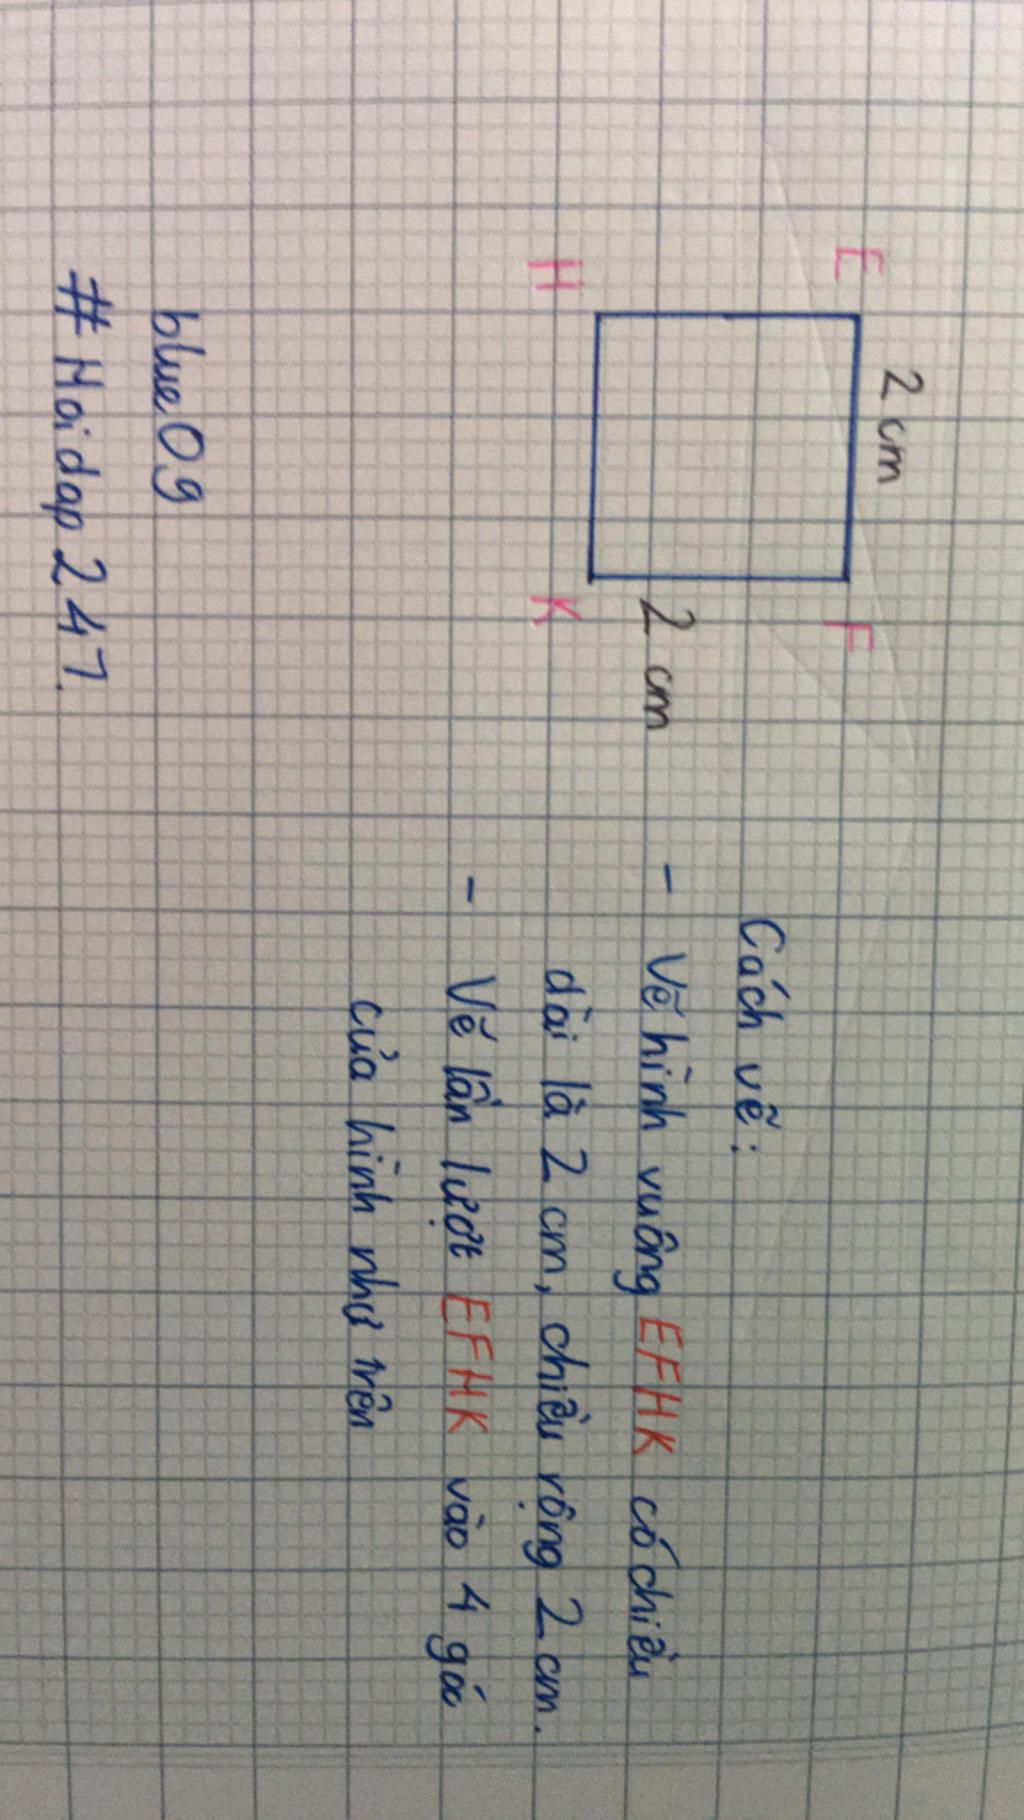 2 cm
E
F
2 cm
H
K
Cách vẽ:
- Vẽ hình vuông EFHK có chiều
dài là 2 cm, chiều rộng 2 cm.
- Vẽ lần lượt EFHK vào 4 góc
của hình như trên
blue09
# Hoidap247.